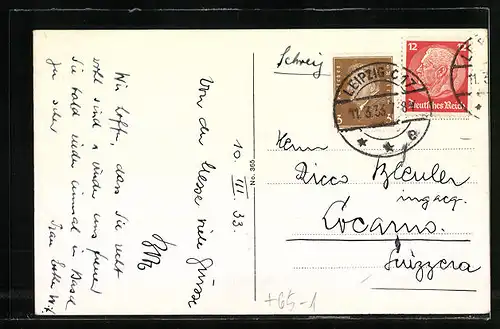 Wir hoffen, dass Sie recht
wohl sind & würden uns freuen
Sie bald wieder einmal in Basel
zu sehen
Von der Messe viele Grüsse
10. III. 33.
No. 365
Schweiz
3
LEIPZIG C 2
11.3.33
12 12
Deutsches Reich
Herrn
Ricco Bleuler
ingeg.
Locarno.
Suizzera
+65-1